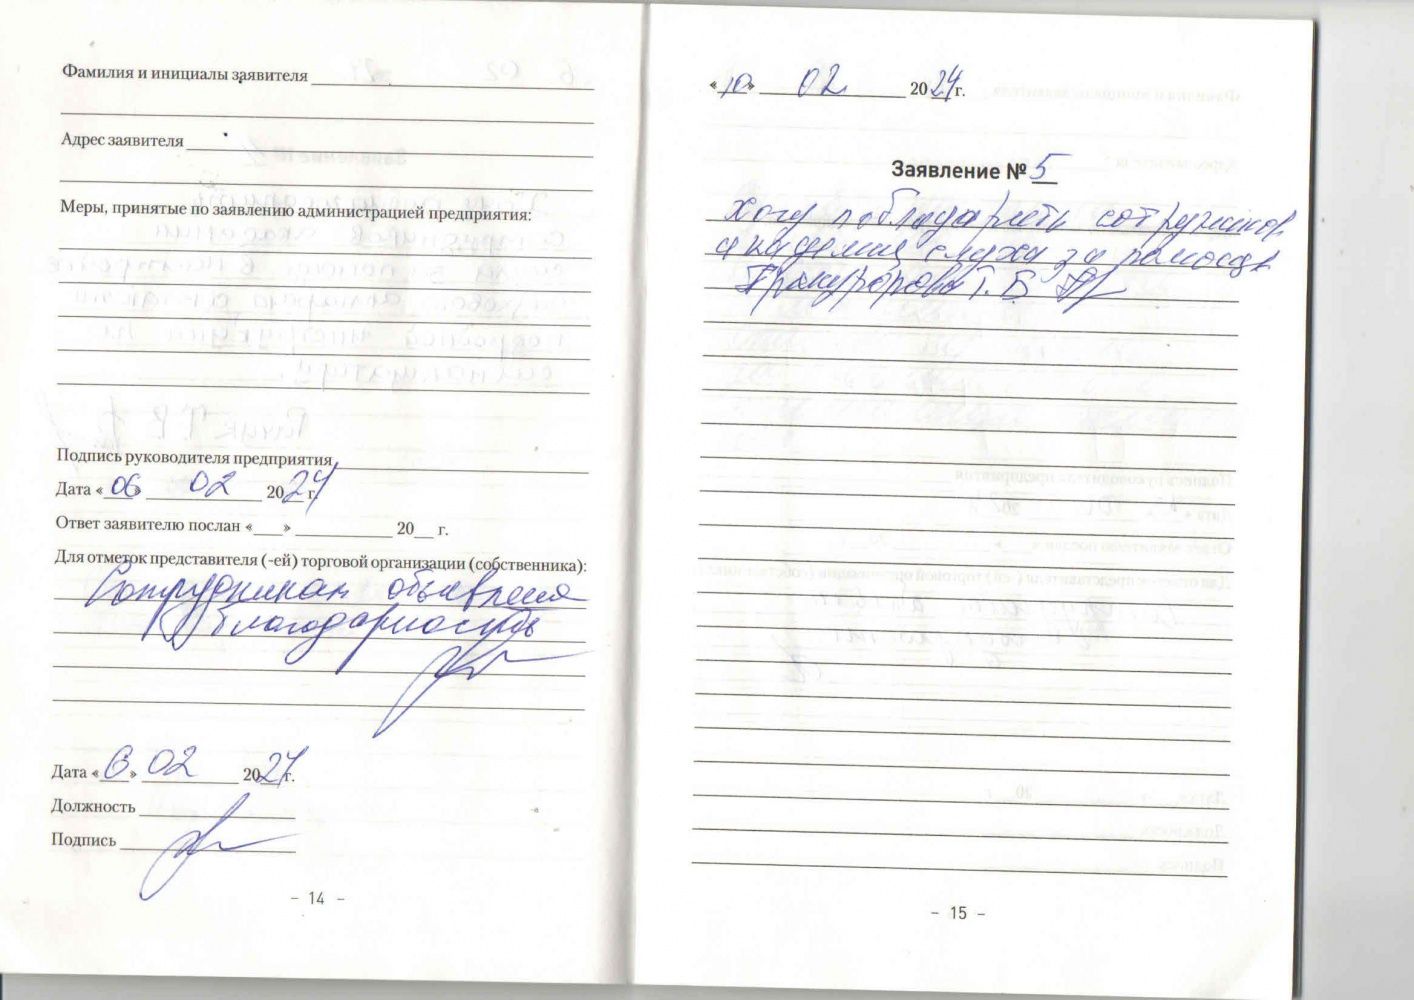 Фамилия и инициалы заявителя
Адрес заявителя
Меры, принятые по заявлению администрацией предприятия:
Подпись руководителя предприятия
Дата «06» 02 2024 г.
Ответ заявителю послан «___» ________ 20__ г.
Для отметок представителя (-ей) торговой организации (собственника):
Сотрудникам объявлена
благодарность
Дата «6» 02 2024 г.
Должность
Подпись
- 14 -
«10» 02 2024 г.
Заявление № 5
Хочу поблагодарить сотрудников
академия слуха за помощь
Г. Б.
- 15 -